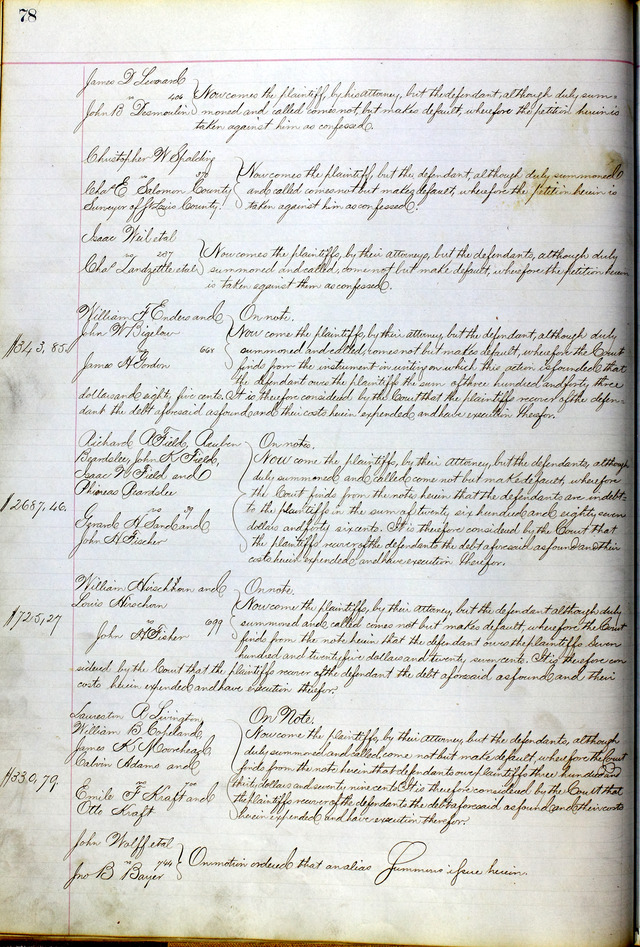 78
James D Leonard
404
John B Desmoulin
Now comes the plaintiff, by his attorney, but the defendant, although duly sum-
moned and called comes not, but makes default, wherefore the petition herein is
taken against him as confessed.
Christopher W Spalding
vs 570
Chas E Salomon County
Surveyor of St Louis County.
Now comes the plaintiff, but the defendant, although duly summoned
and called comes not but makes default, wherefore the petition herein is
taken against him as confessed.
Isaac Weil et al
vs 587
Chas Landzettle et al
Now come the plaintiffs, by their attorneys, but the defendants, although duly
summoned and called, come not but make default, wherefore the petition herein
is taken against them as confessed.
$343,85
William F Enders and
John W Bigelow
vs 661
James H Gordon
On note.
Now come the plaintiffs, by their attorney but the defendant, although duly
summoned and called, comes not but makes default, wherefore the Court
finds from the instrument in writing on which this action is founded that
the defendant owes the plaintiffs the sum of three hundred and forty three
dollars and eighty five cents. It is therefore considered by the Court that the plaintiffs recover of the defen-
dant the debt aforesaid as found and their costs herein expended and have execution therefor.
$2687,46.
Richard P Field, Reuben
Beardslee, John K Field,
Isaac W Field and
Phineas Beardslee
vs
Gerard H Sand and
John H Fischer
On notes.
Now come the plaintiffs, by their Attorney, but the defendants, although
duly summoned and called come not but make default, wherefore
the Court finds from the notes herein that the defendants are indebt-
to the plaintiffs in the sum of twenty six hundred and eighty seven
dollars and forty six cents. It is therefore considered by the Court that
the plaintiffs recover of the defendants the debt aforesaid as found and their
costs herein expended and have execution therefor.
$725,27
William Hirschhorn and
Louis Hirschorn
vs 699
John H Fisher
On note.
Now come the plaintiffs, by their Attorney, but the defendant although duly
summoned and called comes not but makes default, wherefore the Court
finds from the note herein that the defendant owes the plaintiffs Seven
hundred and twenty five dollars and twenty seven cents. It is therefore con
sidered by the Court that the plaintiffs recover of the defendant the debt aforesaid as found and their
costs herein expended and have execution therefor.
$330,79.
Laureston R Livingston
William B Copeland
James K Moorehead
Calvin Adams and
vs 700
Emile F Kraft and
Otto Kraft
On Note.
Now come the plaintiffs, by their Attorney, but the defendants, although
duly summoned and called, come not but make default, wherefore the Court
finds from the note herein that defendants owe plaintiffs three hundred and
thirty dollars and seventy nine cents. It is therefore considered by the Court that
the plaintiffs recover of the defendants the debt aforesaid as found and their costs
herein expended and have execution therefor.
John Wolff et al
vs 744
Jno B Bayer
On motion ordered that an alias Summons issue herein.